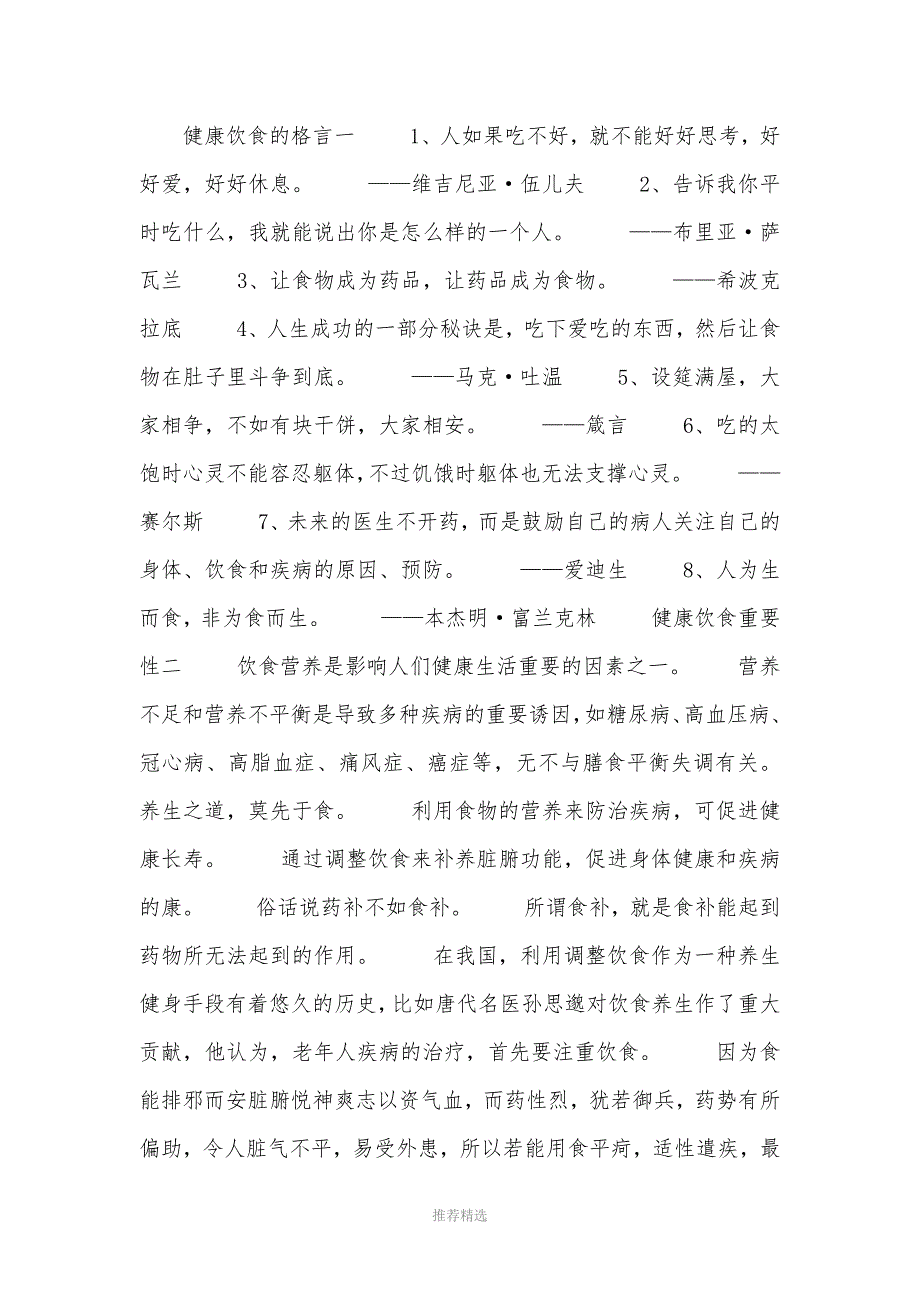 健康饮食的格言一  1、人如果吃不好，就不能好好思考，好
好爱，好好休息。  ——维吉尼亚·伍儿夫  2、告诉我你平
时吃什么，我就能说出你是怎么样的一个人。  ——布里亚·萨
瓦兰  3、让食物成为药品，让药品成为食物。  ——希波克
拉底  4、人生成功的一部分秘诀是，吃下爱吃的东西，然后让食
物在肚子里斗争到底。  ——马克·吐温  5、设筵满屋，大
家相争，不如有块干饼，大家相安。  ——箴言  6、吃的太
饱时心灵不能容忍躯体，不过饥饿时躯体也无法支撑心灵。  ——
赛尔斯  7、未来的医生不开药，而是鼓励自己的病人关注自己的
身体、饮食和疾病的原因、预防。  ——爱迪生  8、人为生
而食，非为食而生。  ——本杰明·富兰克林  健康饮食重要
性二  饮食营养是影响人们健康生活重要的因素之一。  营养
不足和营养不平衡是导致多种疾病的重要诱因，如糖尿病、高血压病、
冠心病、高脂血症、痛风症、癌症等，无不与膳食平衡失调有关。
养生之道，莫先于食。  利用食物的营养来防治疾病，可促进健
康长寿。  通过调整饮食来补养脏腑功能，促进身体健康和疾病
的康。  俗话说药补不如食补。  所谓食补，就是食补能起到
药物所无法起到的作用。  在我国，利用调整饮食作为一种养生
健身手段有着悠久的历史，比如唐代名医孙思邈对饮食养生作了重大
贡献，他认为，老年人疾病的治疗，首先要注重饮食。  因为食
能排邪而安脏腑悦神爽志以资气血，而药性烈，犹若御兵，药势有所
偏助，令人脏气不平，易受外患，所以若能用食平疴，适性遣疾，最
推荐精选